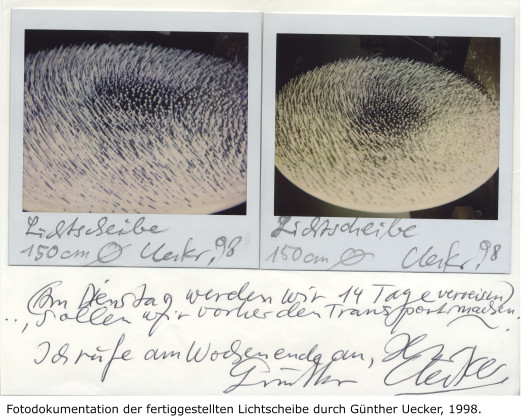 Lichtscheibe
150cm Ø Uecker, 98
Lichtscheibe
150cm Ø Uecker, 98
(Am Dienstag werden wir 14 Tage verreisen)
.., sollen wir vorher den Transport machen.
Ich rufe am Wochenende an,
Günther Uecker
Fotodokumentation der fertiggestellten Lichtscheibe durch Günther Uecker, 1998.